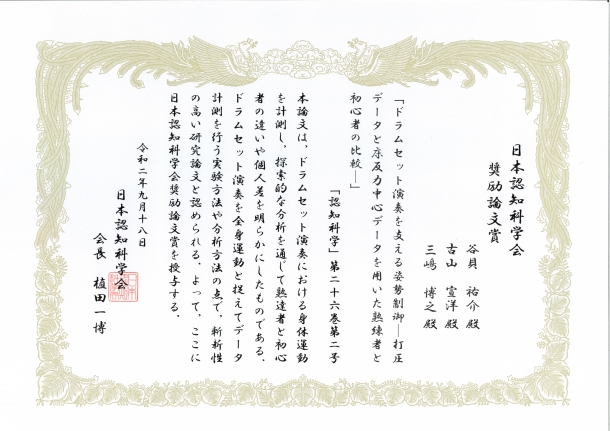 日本認知科学会
奨励論文賞
谷貝 祐介 殿
古山 宣洋 殿
三嶋 博之 殿
「ドラムセット演奏を支える姿勢制御―打圧
データと床反力中心データを用いた熟練者と
初心者の比較―」
「認知科学」第二十六巻第二号
本論文は、ドラムセット演奏における身体運動
を計測し、探索的な分析を通じて熟達者と初心
者の違いや個人差を明らかにしたものである。
ドラムセット演奏を全身運動と捉えてデータ
計測を行う実験方法や分析方法の点で、斬新性
の高い研究論文と認められる。よって、ここに
日本認知科学会奨励論文賞を授与する。
令和二年九月十八日
日本認知科学会
会長 植田一博